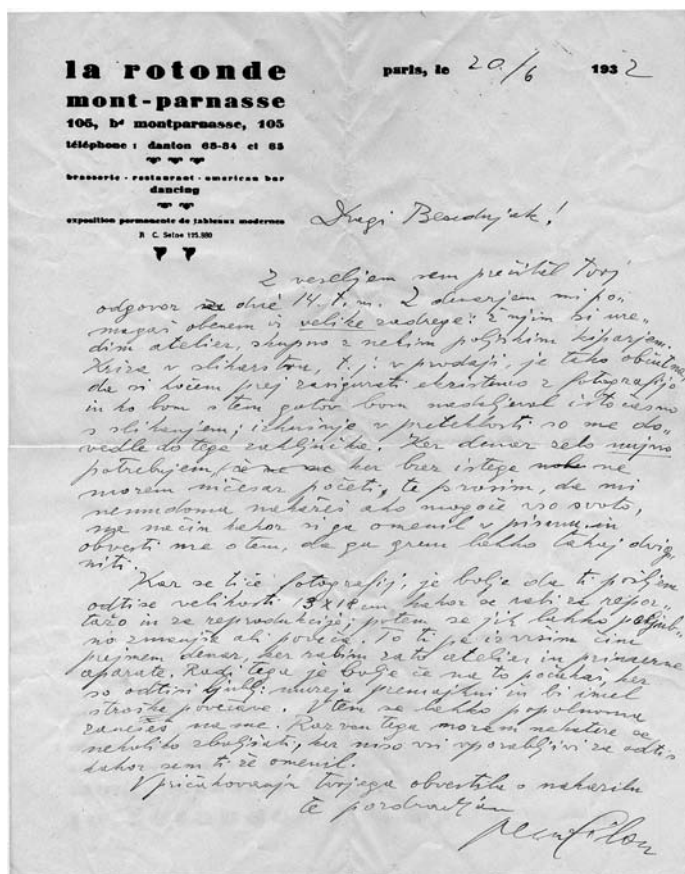 la rotonde
mont-parnasse
105, bd montparnasse, 105
téléphone : danton 68-84 et 85
brasserie - restaurant - american bar
dancing
exposition permanente de tableaux modernes
R C. Seine 175.980
paris, le 20/6 1932
Dragi Besednjak!
Z veseljem sem prečital tvoj
odgovor na dné 14. t. m. Z denarjem mi po-
magaš obenem iz velike zadrege: z njim si ure-
dim atelier, skupno z nekim poljskim kiparjem.
Kriza v slikarstvu, t. j: v prodaji, je tako občutna,
da si hočem prej zasigurati eksistenco z fotografijo
in ko bom s tem gotov bom nadaljeval istočasno
s slikanjem; izkušnje v preteklosti so me do-
vedle do tega zaključka. Ker denar zelo nujno
potrebujem, ker brez istega ne
morem ničesar početi, te prosim, da mi
nemudoma nakažeš ako mogoče vso svoto,
na način kakor si ga omenil v pismu in
obvesti me o tem, da ga grem lahko takoj dvig-
niti.
Kar se tiče fotografij, je bolje da ti pošljem
odtise velikosti 13 x 18 cm, kakor se rabi za repor-
tažo in za reprodukcije; potem se jih lahko poljub-
no zmanjša ali poveča. To ti pa izvršim čim
prejmem denar, ker rabim zato atelier in primerne
aparate. Radi tega je bolje če na to počakaš, ker
so odtisi ljublj. muzeja premajhni in bi imel
stroške povečave. V tem se lahko popolnoma
zaneseš na me. Razven tega moram nekatere še
nekoliko zboljšati, ker niso vsi uporabljivi za odtis
kakor sem ti že omenil.
V pričakovanju tvojega obvestila o nakazilu
te pozdravljam
Pilon